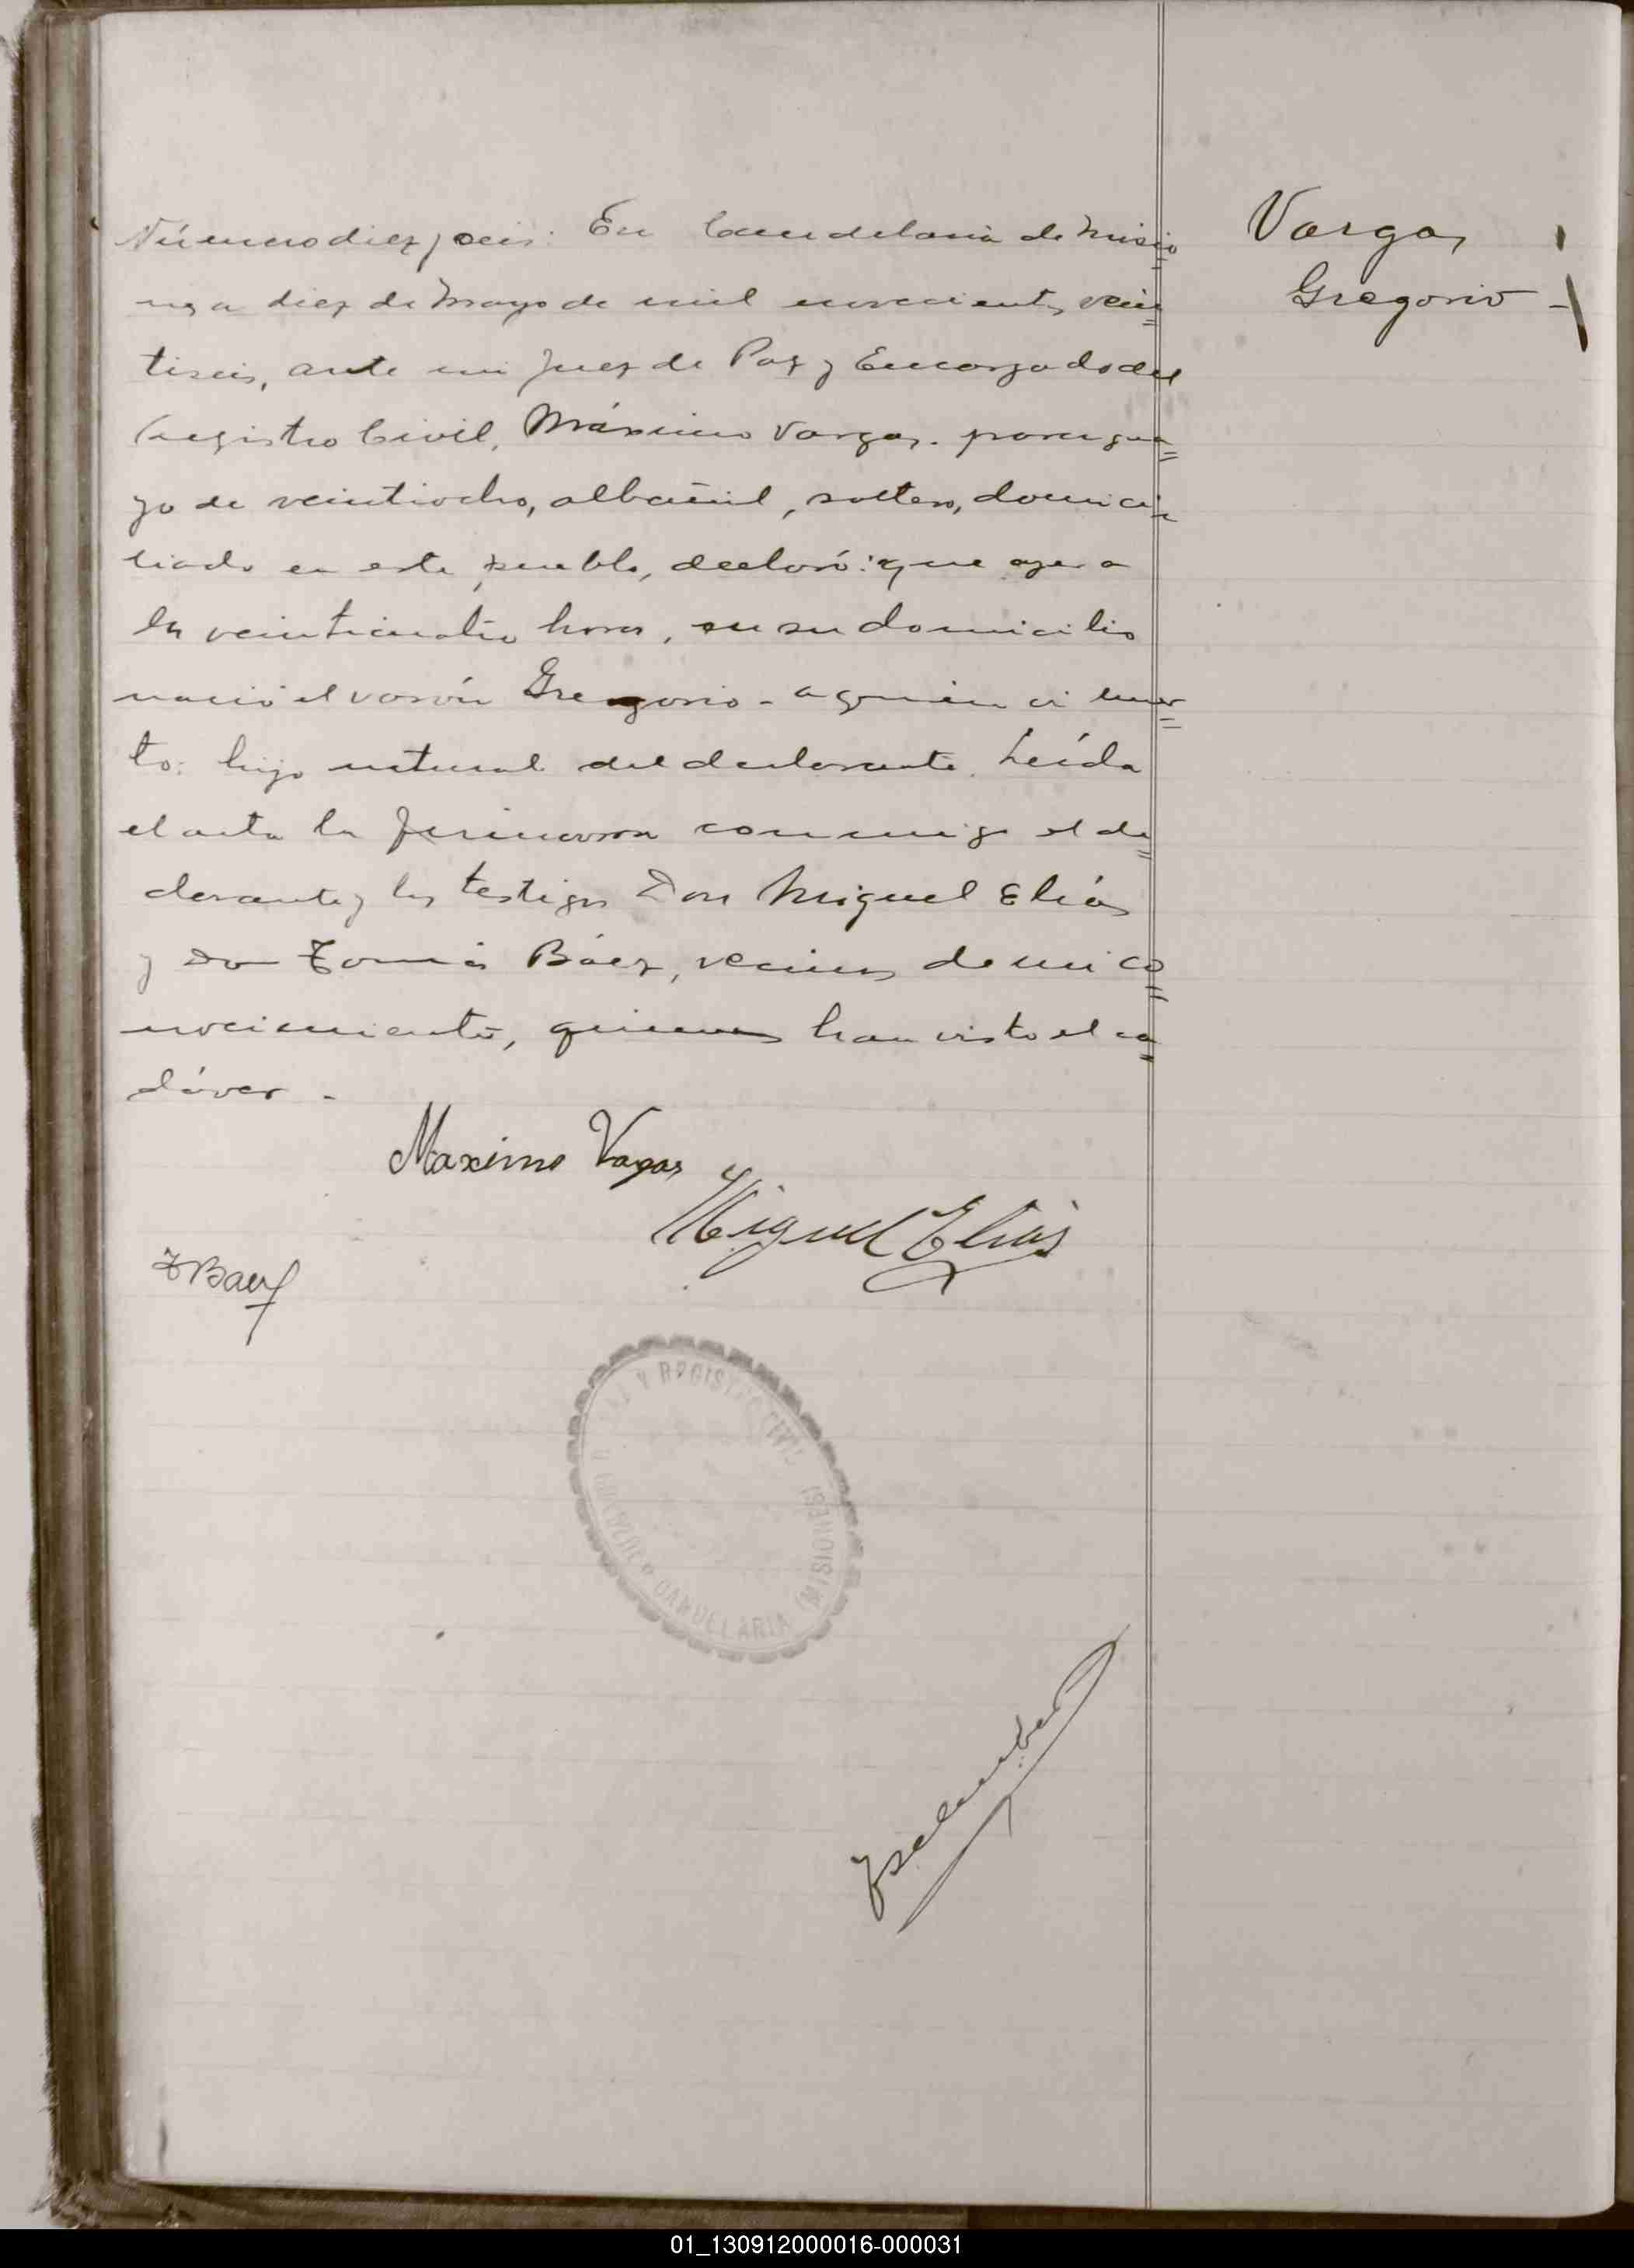 Número diez y seis: En Candelaria de Misio
nes a diez de Mayo de mil novecientos vein
tiseis, ante mi Juez de Paz y Encargado del
Registro Civil, Máximo Vargas. paragua
yo de veintiocho, albañil, soltero, domici
liado en este pueblo, declaró: que ayer a
las veinticuatro horas, en su domicilio
nació el varón Gregorio - a quien vi muer
to: hijo natural del declarante. Leída
el acta la firmaron conmigo el de
clarante y los testigos Don Miguel Elías
y Don Tomás Báez, vecinos de mi co
nocimiento, quienes han visto el ca
dáver -
Vargas
Gregorio -
Maximo Vagas
Miguel Elias
T Baez
PAZ Y REGISTRO CIVIL
CANDELARIA (MISIONES)
01_130912000016-000031